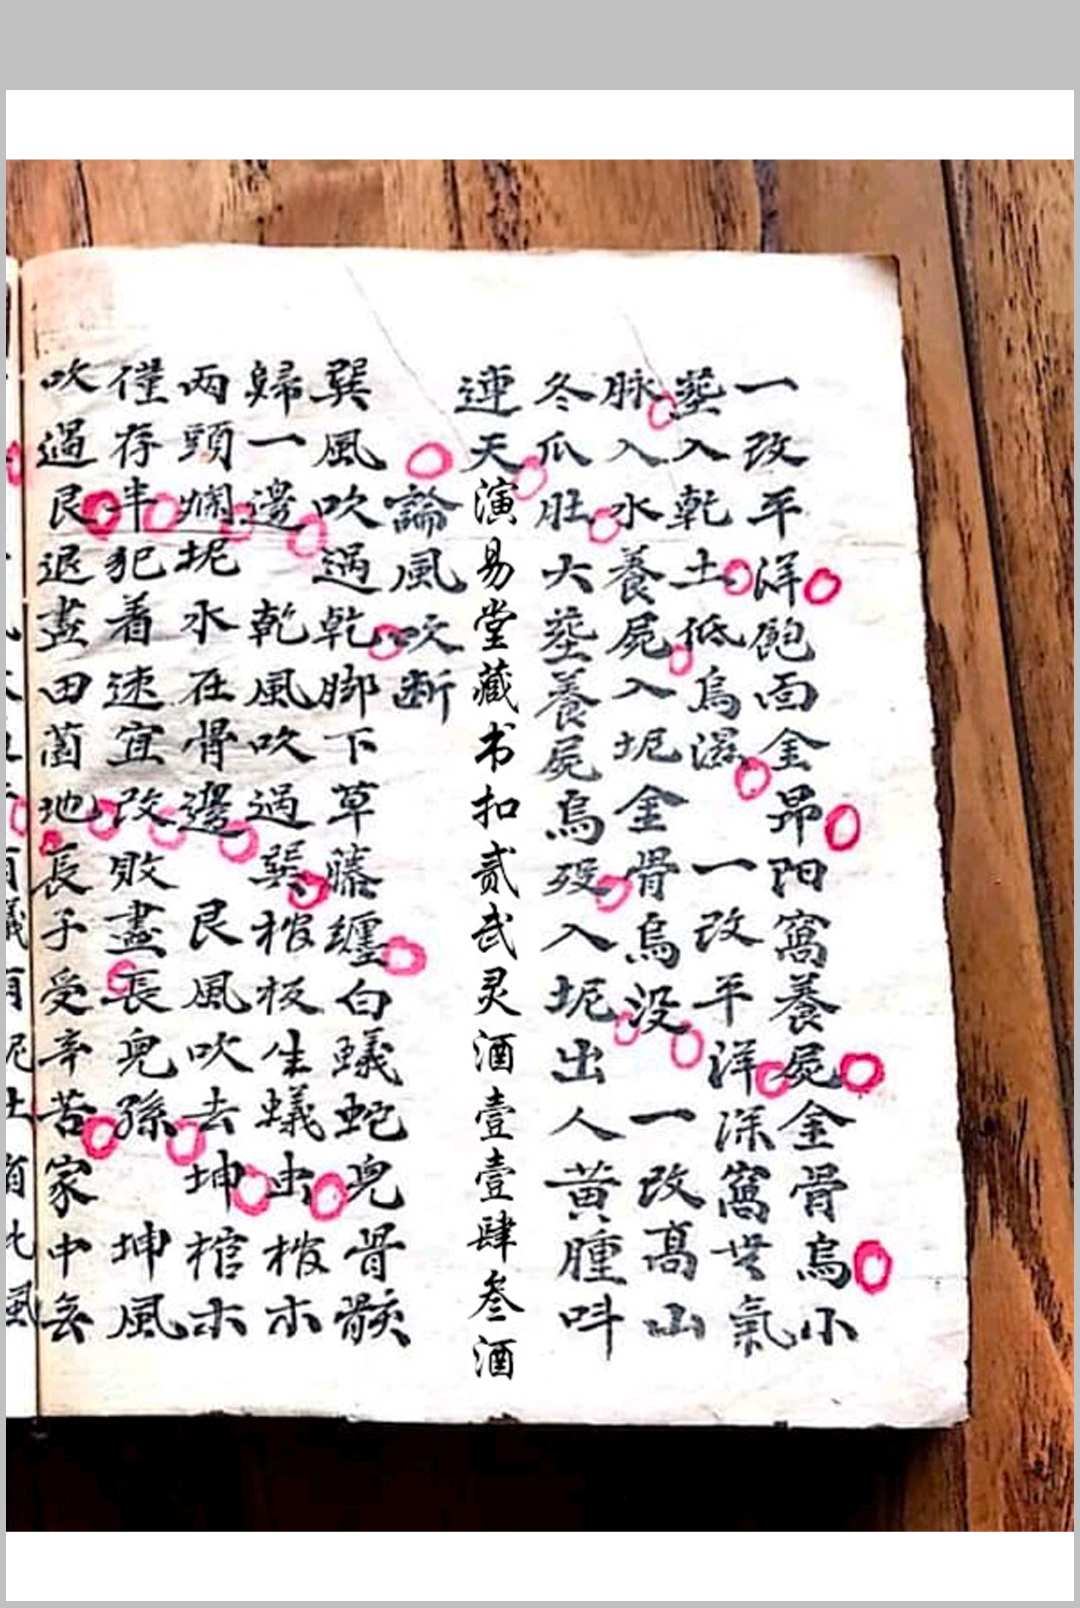 一改平洋飽面金昂阳窩養屍金骨烏小
塟入乾土低烏滋 一改平洋深窩无氣
脉入水養屍入坭金骨烏没 一改高山
冬瓜肚大塟養屍烏殁入坭出人黄腫呌
連天
演易堂藏书扣贰贰灵酒壹壹肆叁酒
論風吹断
巽風吹過乾脚下草藤纏白蟻蛇兜骨骸
歸一邊 乾風吹過巽棺板生蟻虫棺木
兩頭爛坭水在骨邊 艮風吹去坤棺木
僅存半犯着速宜改敗盡長兒孫 坤風
吹過艮退盡田園地長子受辛苦家中去